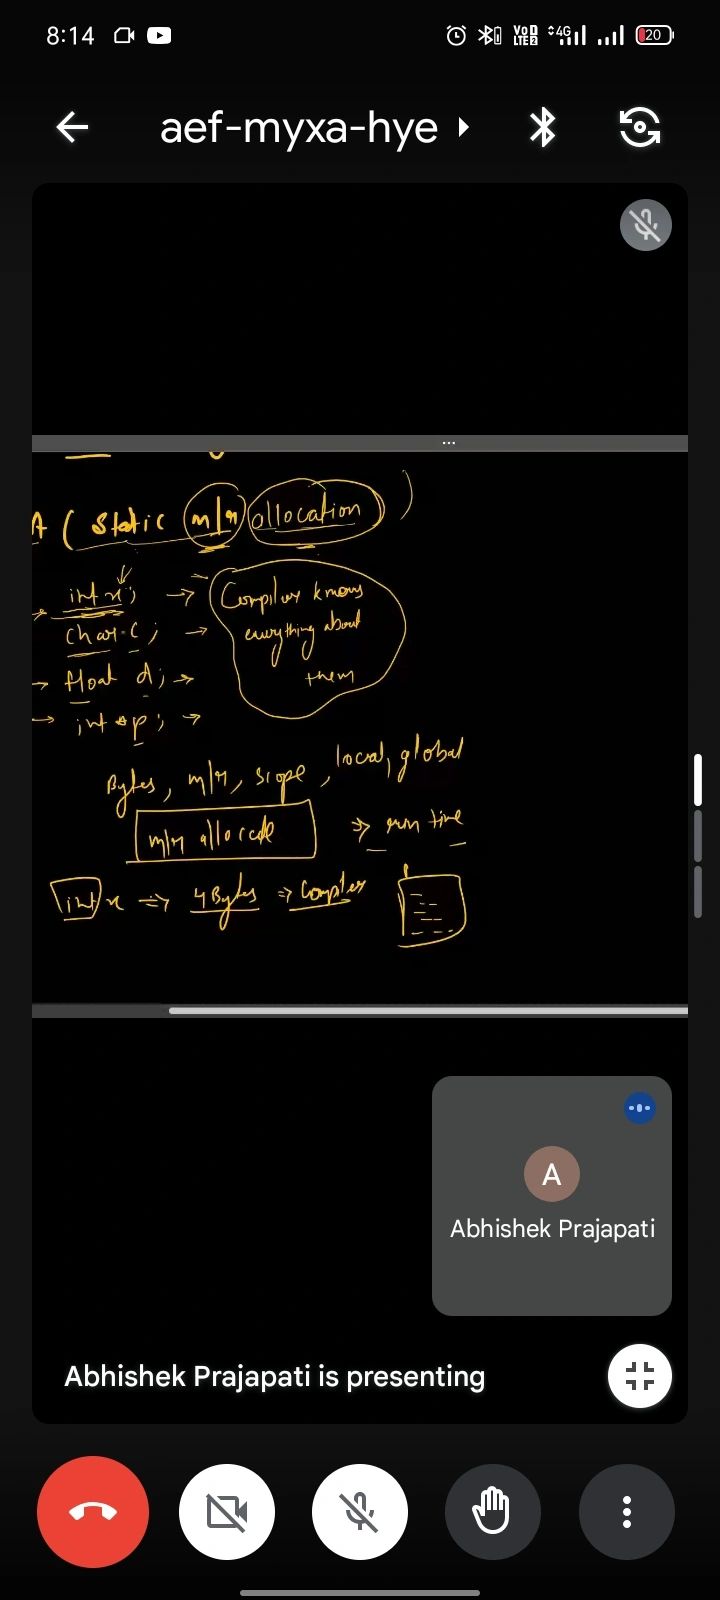 8:14
VoD LTE2 4G 20
aef-myxa-hye
A ( Static m/m allocation )
int x; → Compiler knows
char c; → everything about
→ float d; → them
→ int *p; →
Bytes, m/m, scope, local, global
m/m allocate ⇒ run time
int x ⇒ 4 Bytes ⇒ Compiler
A
Abhishek Prajapati
Abhishek Prajapati is presenting